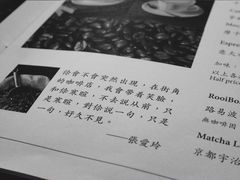 你會不會突然出現，在街角
的咖啡店，我會帶著笑臉，
和你寒暄，不去說從前，只
是寒暄，對你說一句，只是
一句，好久不見。
——張愛玲
以上各
Half pric
RooiBo
路易波
無咖啡因
Matcha L
京都宇治